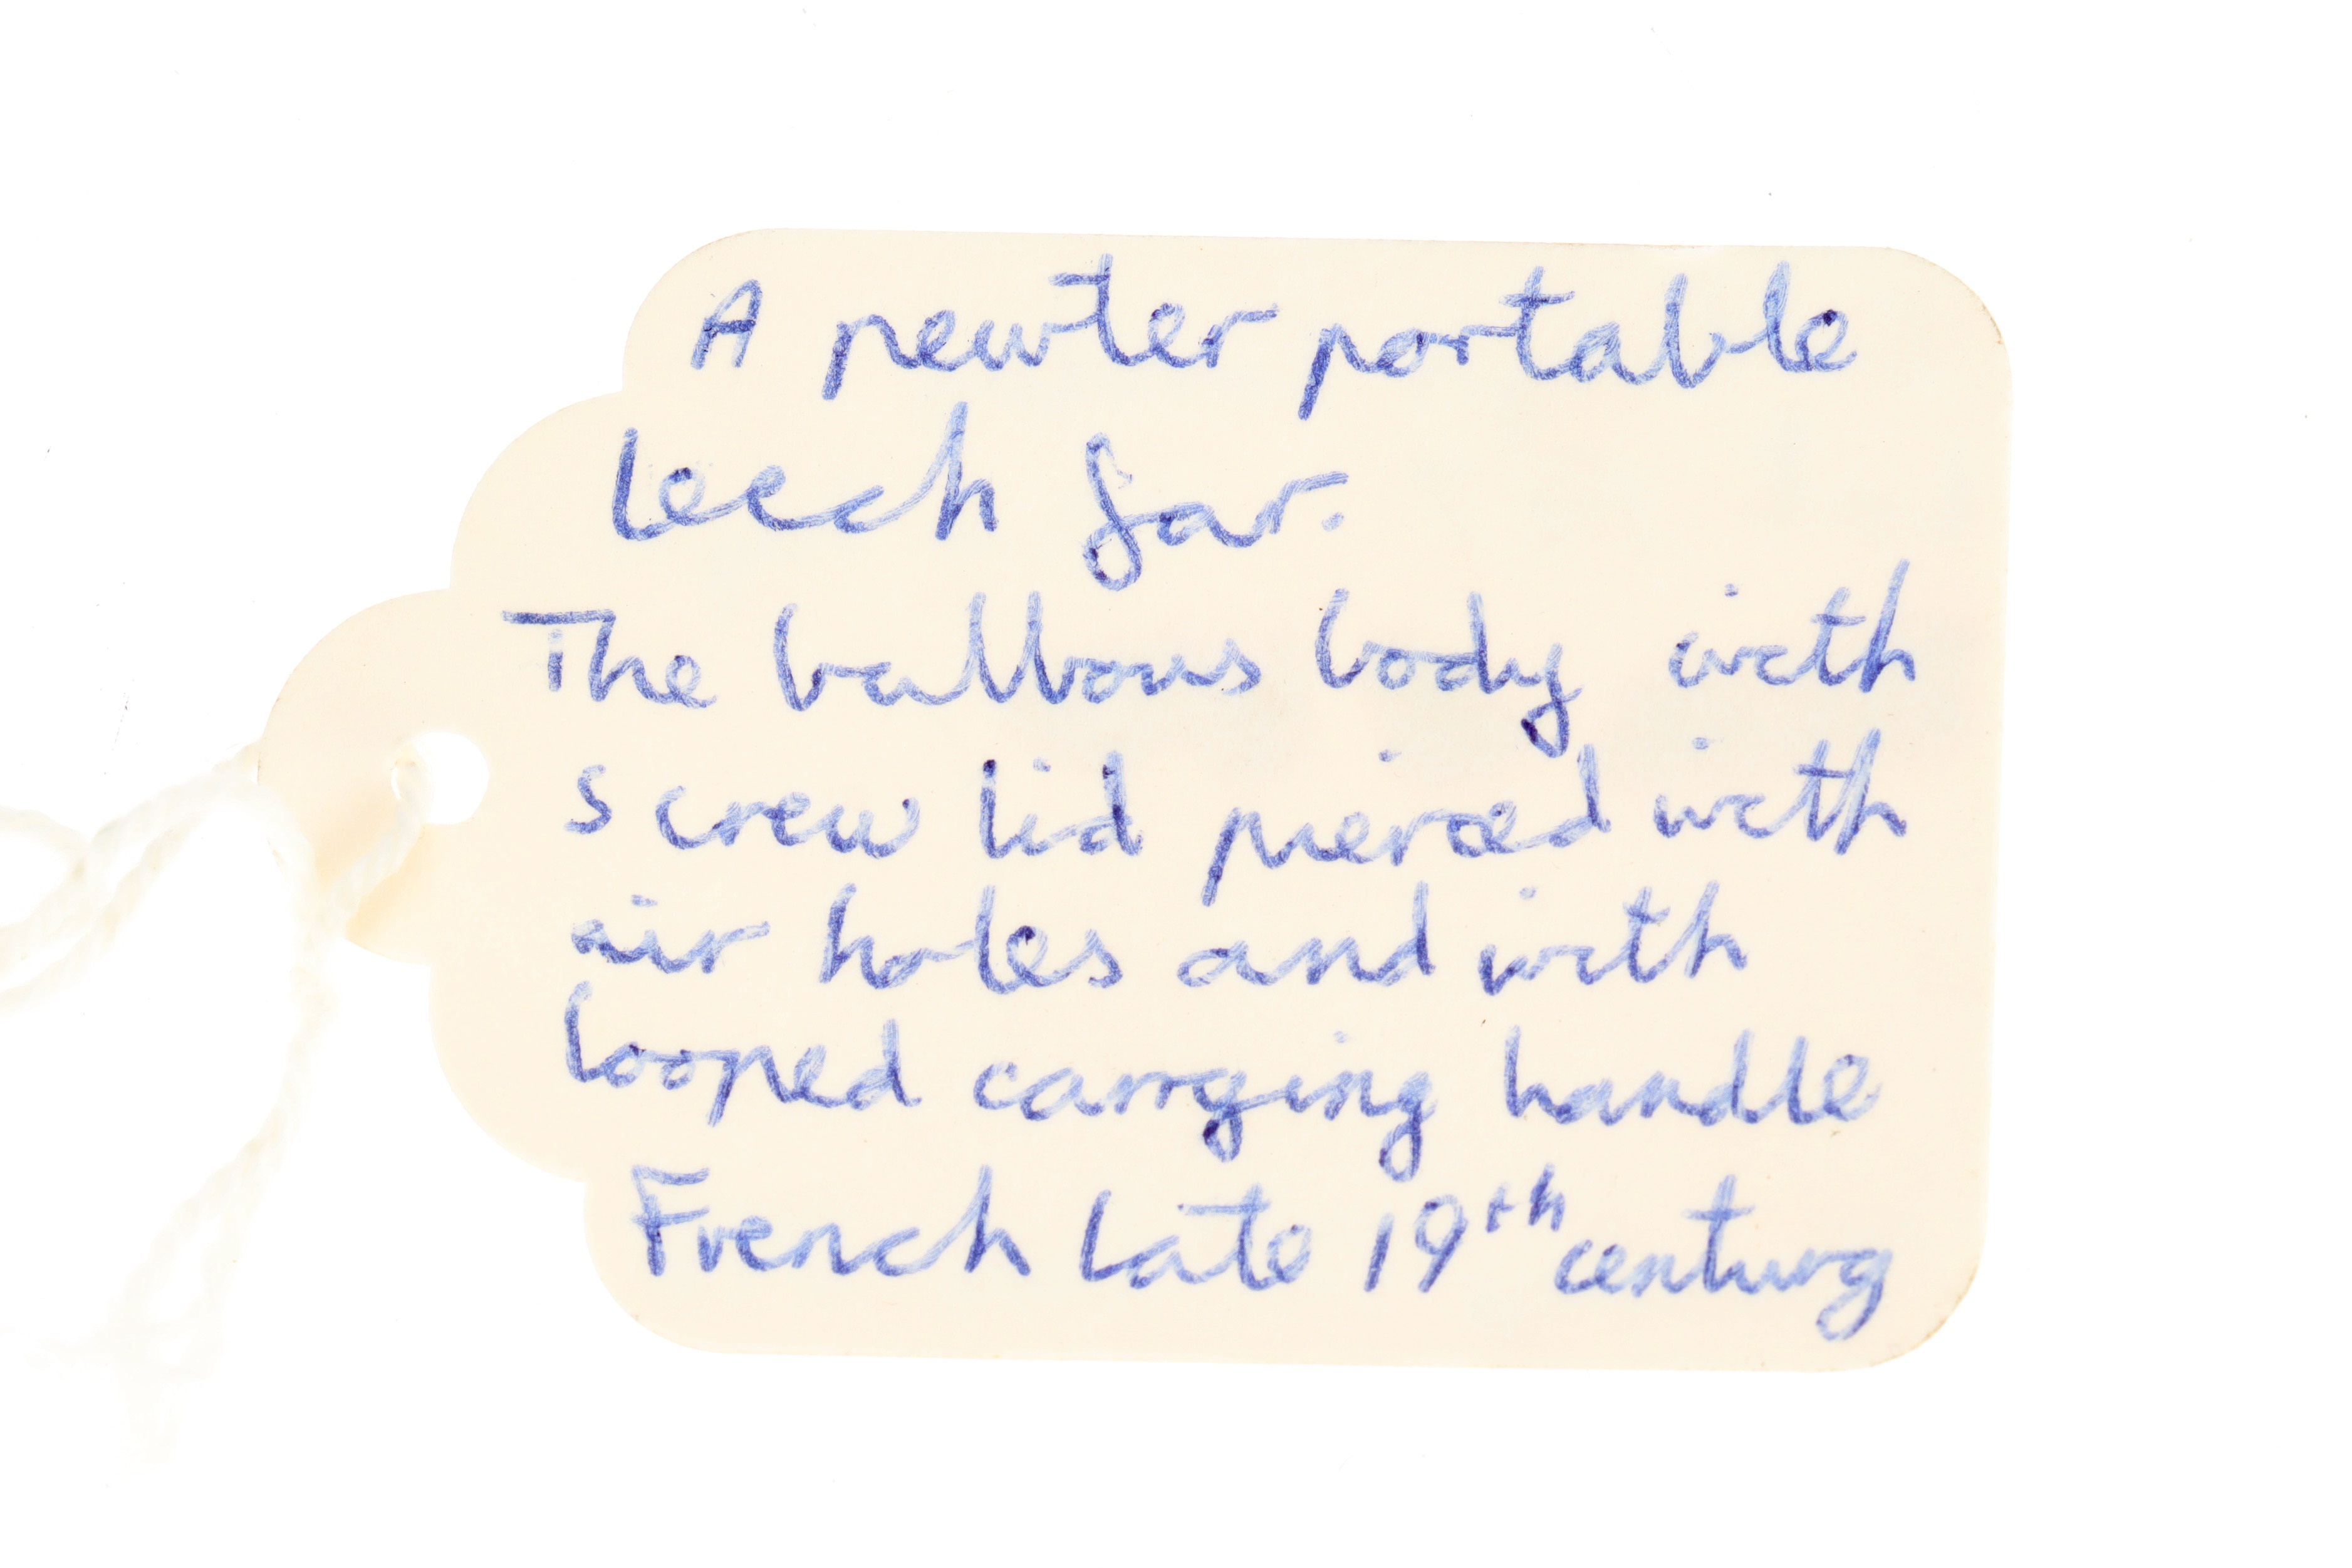 A pewter portable
leech Jar.
The bulbous body with
screw lid pierced with
air holes and with
looped carrying handle
French late 19th century